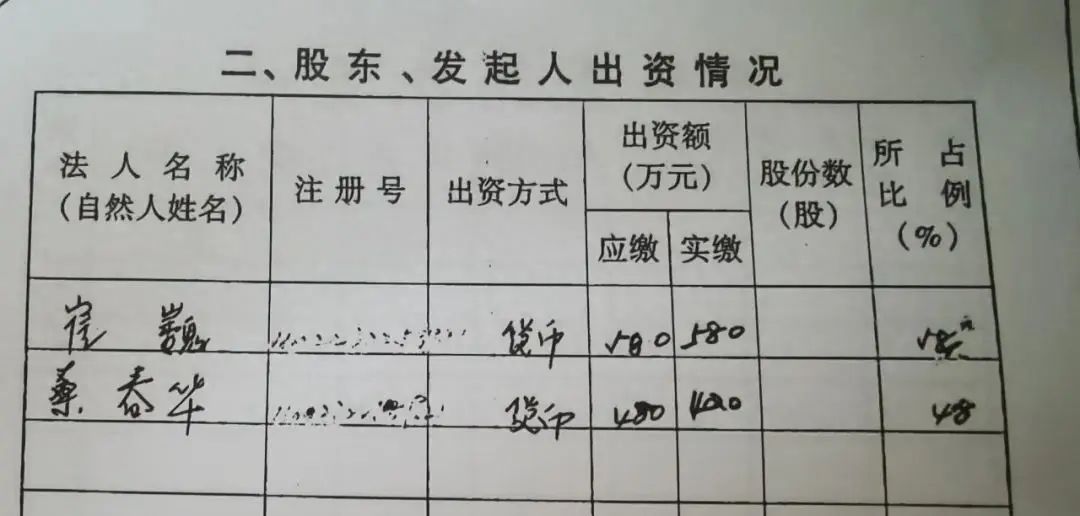 二、股东、发起人出资情况
法人名称 注册号 出资方式 出资额 股份数 所占
(自然人姓名) (万元) (股) 比例
应缴 实缴 (%)
崔巍 货币 580 580
桑春华 货币 480 420 48